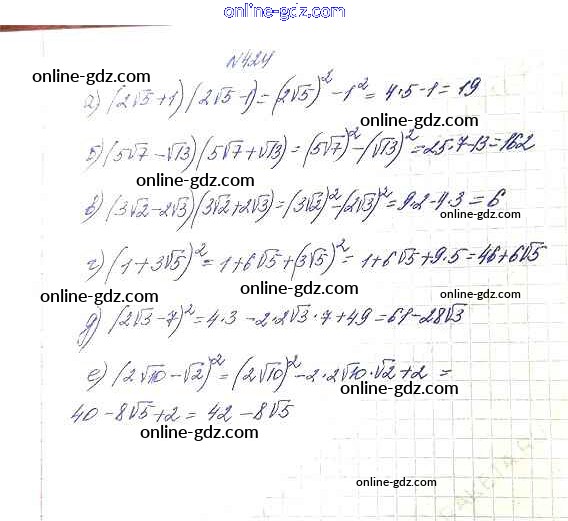 online-gdz.com
№424
online-gdz.com
а) (2√5+1)(2√5-1)=(2√5)²-1²=4·5-1=19
online-gdz.com
online-gdz.com
б) (5√7-√13)(5√7+√13)=(5√7)²-(√13)²=25·7-13=162
online-gdz.com
в) (3√2-2√3)(3√2+2√3)=(3√2)²-(2√3)²=9·2-4·3=6
online-gdz.com
online-gdz.com
г) (1+3√5)²=1+6√5+(3√5)²=1+6√5+9·5=46+6√5
online-gdz.com
online-gdz.com
д) (2√3-7)²=4·3-2·2√3·7+49=61-28√3
online-gdz.com
е) (2√10-√2)²=(2√10)²-2·2√10·√2+2=
online-gdz.com
40-8√5+2=42-8√5
online-gdz.com
online-gdz.com